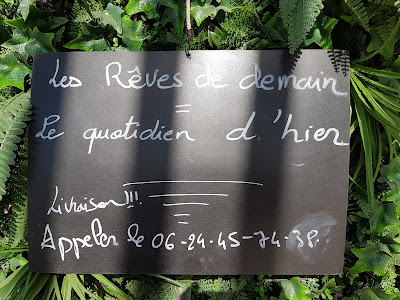 Les Rêves de demain
=
Le quotidien d'hier
Livraison!!!
Appeler le 06-24-45-74-38.